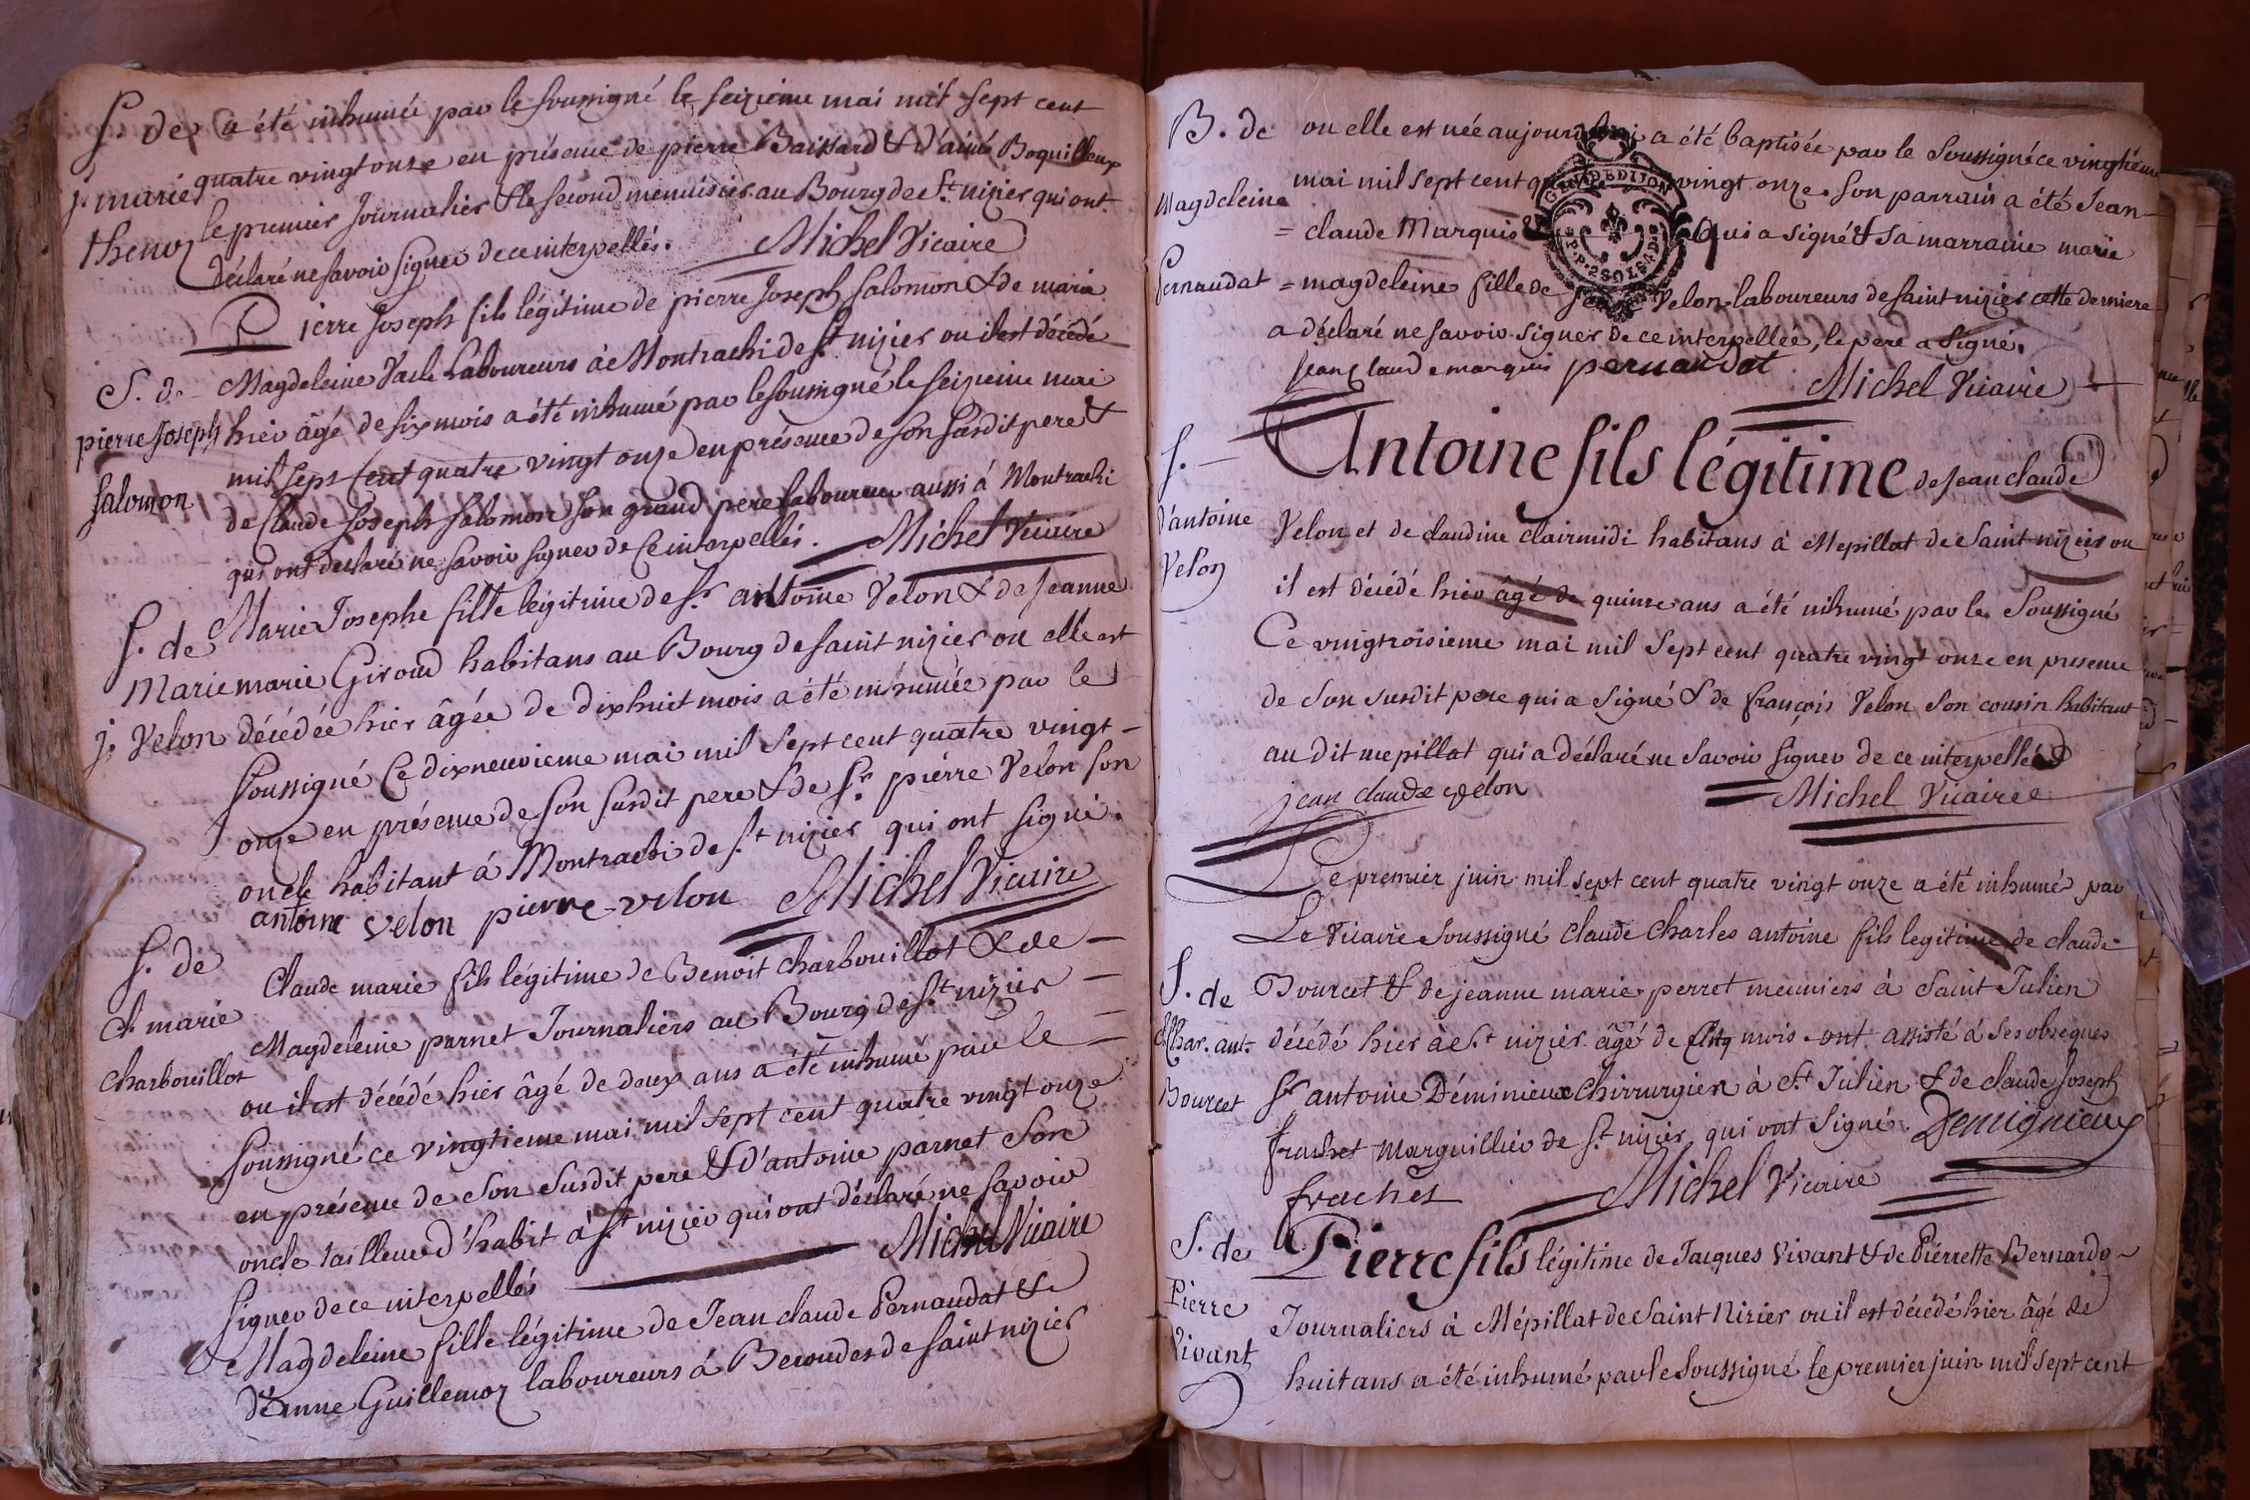 S. de
j. marie
thenoz
a été inhumée par le soussigné le seizieme mai mil sept cent
quatre vingt onze en présence de pierre Baissard & d'aimé Boquilleux
le premier Journalier & le second menuisier au Bourg de St. nizier qui ont
déclaré ne savoir signer de ce interpellés. Michel Vicaire
S. de
pierre Joseph
Salomon
Pierre Joseph fils légitime de pierre Joseph Salomon & de marie
Magdeleine Laboureurs à Montrachi de St nizier ou il est décédé
hier âgé de six mois a été inhumé par le soussigné le seizieme mai
mil sept cent quatre vingt onze en présence de son susdit pere &
de Claude Joseph Salomon son grand pere laboureur aussi à Montrachi
qui ont declaré ne savoir signer de ce interpellés. Michel Vicaire
S. de
Marie
j. Velon
Marie Josephe fille légitime de Sr. antoine Velon & de Jeanne
marie Giroud habitans au Bourg de saint nizier où elle est
décédée hier âgée de dixhuit mois a été inhumée par le
soussigné Ce dixneuvieme mai mil sept cent quatre vingt -
onze en présence de son susdit pere & de Sr. piérre Velon son
oncle habitant à Montrachi de S.t nizier qui ont signé.
antoine velon pierre velon Michel Vicaire
S. de
cl. marie
Charbouillot
Claude marie fils légitime de Benoit charbouillot & de -
Magdeleine parnet Journaliers au Bourg de St. nizier -
ou il est décédé hier âgé de deux ans a été inhumé par le -
soussigné ce vingtieme mai mil sept cent quatre vingt onze
en présence de son susdit pere & d'antoine parnet son
oncle tailleur d'habit à St. nizier qui ont déclaré ne savoir
signer de ce interpellés Michel Vicaire
Magdeleine fille légitime de Jean claude Pernaudat &
d'Anne Guillemoz laboureurs à Becoudes de saint nizier
B. de
Magdeleine
Pernaudat
ou elle est née aujourd'hui a été baptisée par le soussigné ce vingtième
mai mil sept cent vingt onze. son parrain a été Jean-
= claude Marquis qui a signé & sa marraine marie
= magdeleine fille de Velon laboureurs de saint nizier cette derniere
a déclaré ne savoir signer de ce interpellée, le pere a signé.
jean claude marquis pernaudat Michel Vicaire
GEN. DE DIJON
S. -
d'antoine
Velon
Antoine fils légitime de Jean claude
Velon et de claudine clairmidi habitans à Mepillat de Saint nizier ou
il est décédé hier âgé de quinze ans a été inhumé par le Soussigné
Ce vingtroisieme mai mil sept cent quatre vingt onze en presence
de son susdit pere qui a signé & de françois Velon son cousin habitant
au dit mepillat qui a déclaré ne savoir signer de ce interpellé
jean claude velon Michel Vicaire
S. de
cl. Char. ant.
Bourcet
Le premier juin mil sept cent quatre vingt onze a été inhumé par
Le Vicaire Soussigné Claude Charles antoine fils legitime de claude
Bourcet & de jeanne marie perret meuniers à Saint Julien
décédé hier à St nizier âgé de cinq mois ont assisté à ses obseques
Sr antoine Déminieux Chirrurgien à St Julien & de claude Joseph
frachet Marguillier de St. nizier qui ont signé. Demignieux
frachet Michel Vicaire
S. de
Pierre
Vivant
Pierre fils légitime de Jacques Vivant & de Piérrette Bernardo -
Journaliers à Mépillat de Saint Nizier ou il est décédé hier âgé de
huit ans a été inhumé par le Soussigné le premier juin mil sept cent